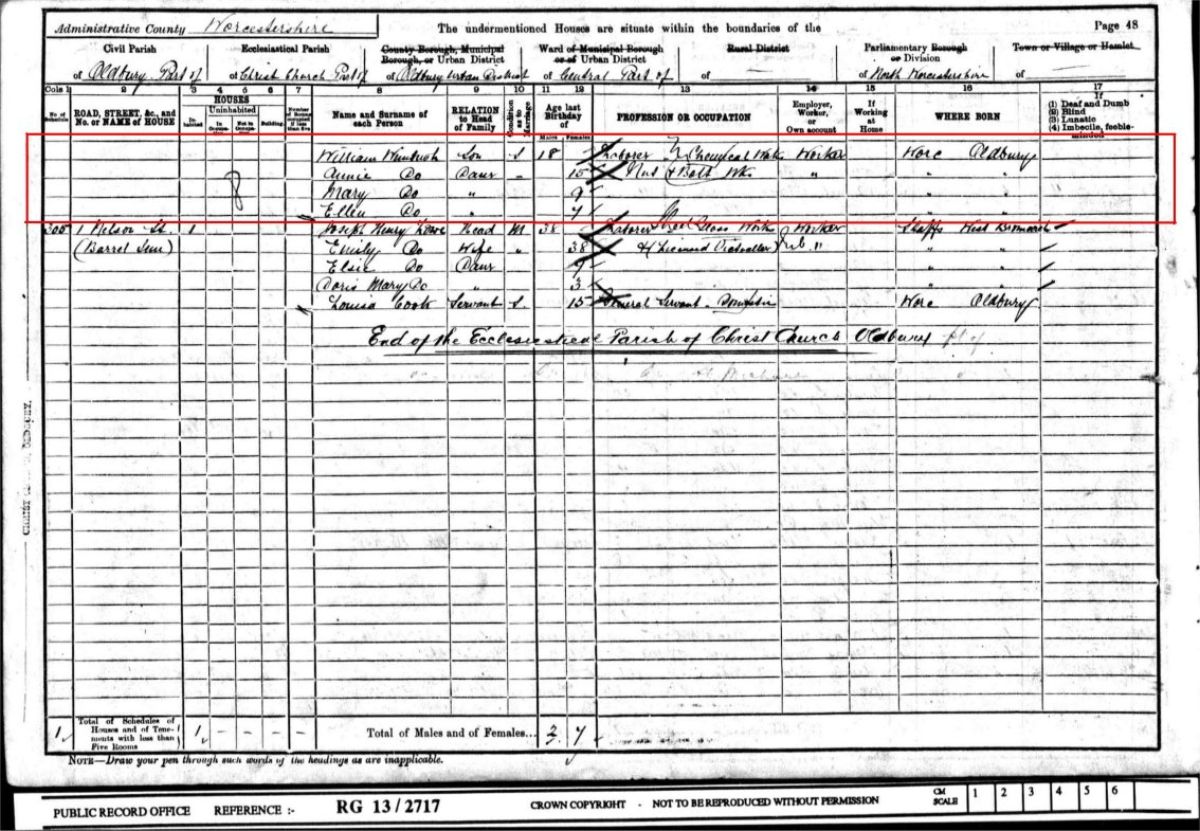 Administrative County Worcestershire The undermentioned Houses are situate within the boundaries of the Page 48
Civil Parish Ecclesiastical Parish County Borough, Municipal Borough, or Urban District Ward of Municipal Borough or of Urban District Rural District Parliamentary Borough or Division Town or Village or Hamlet
of Oldbury Part of of Christ Church Part of of Oldbury Urban District of Central Part of of — of North Worcestershire of —
Cols 1 2 3 4 5 6 7 8 9 10 11 12 13 14 15 16 17
No. of Schedule ROAD, STREET, &c., and No. or NAME of HOUSE HOUSES Inhabited Uninhabited In Occupation Not in Occupation Building Number of Rooms occupied if less than five Name and Surname of each Person RELATION to Head of Family Condition as to Marriage Age last Birthday of Males Females PROFESSION OR OCCUPATION Employer, Worker, or Own account If Working at Home WHERE BORN If (1) Deaf and Dumb (2) Blind (3) Lunatic (4) Imbecile, feeble-minded
William Son S 18 Laborer Chemical Work Worker Worc Oldbury
Annie Do Daur - 15 Nut & Bolt Wk " " "
Mary Do " 9 " "
Ellen Do " 7 " "
305 1 Nelson St. 1 Joseph Henry Head M 38 Laborer Glass Works Worker Staffs West Bromwich
(Barrel Inn) Emily Do Wife " 38 & Licensed Victualler Pub " " "
Elsie Do Daur 9 " "
Doris Mary Do " 3 " "
Louisa Cook Servant S. 15 General Servant - Domestic Worc Oldbury
End of the Ecclesiastical Parish of Christ Church Oldbury pt of
1 Total of Schedules of Houses and of Tenements with less than Five Rooms 1 - - - - Total of Males and of Females... 2 7
NOTE—Draw your pen through such words of the headings as are inapplicable.
PUBLIC RECORD OFFICE REFERENCE :- RG 13/2717 CROWN COPYRIGHT - NOT TO BE REPRODUCED WITHOUT PERMISSION CM SCALE 1 2 3 4 5 6